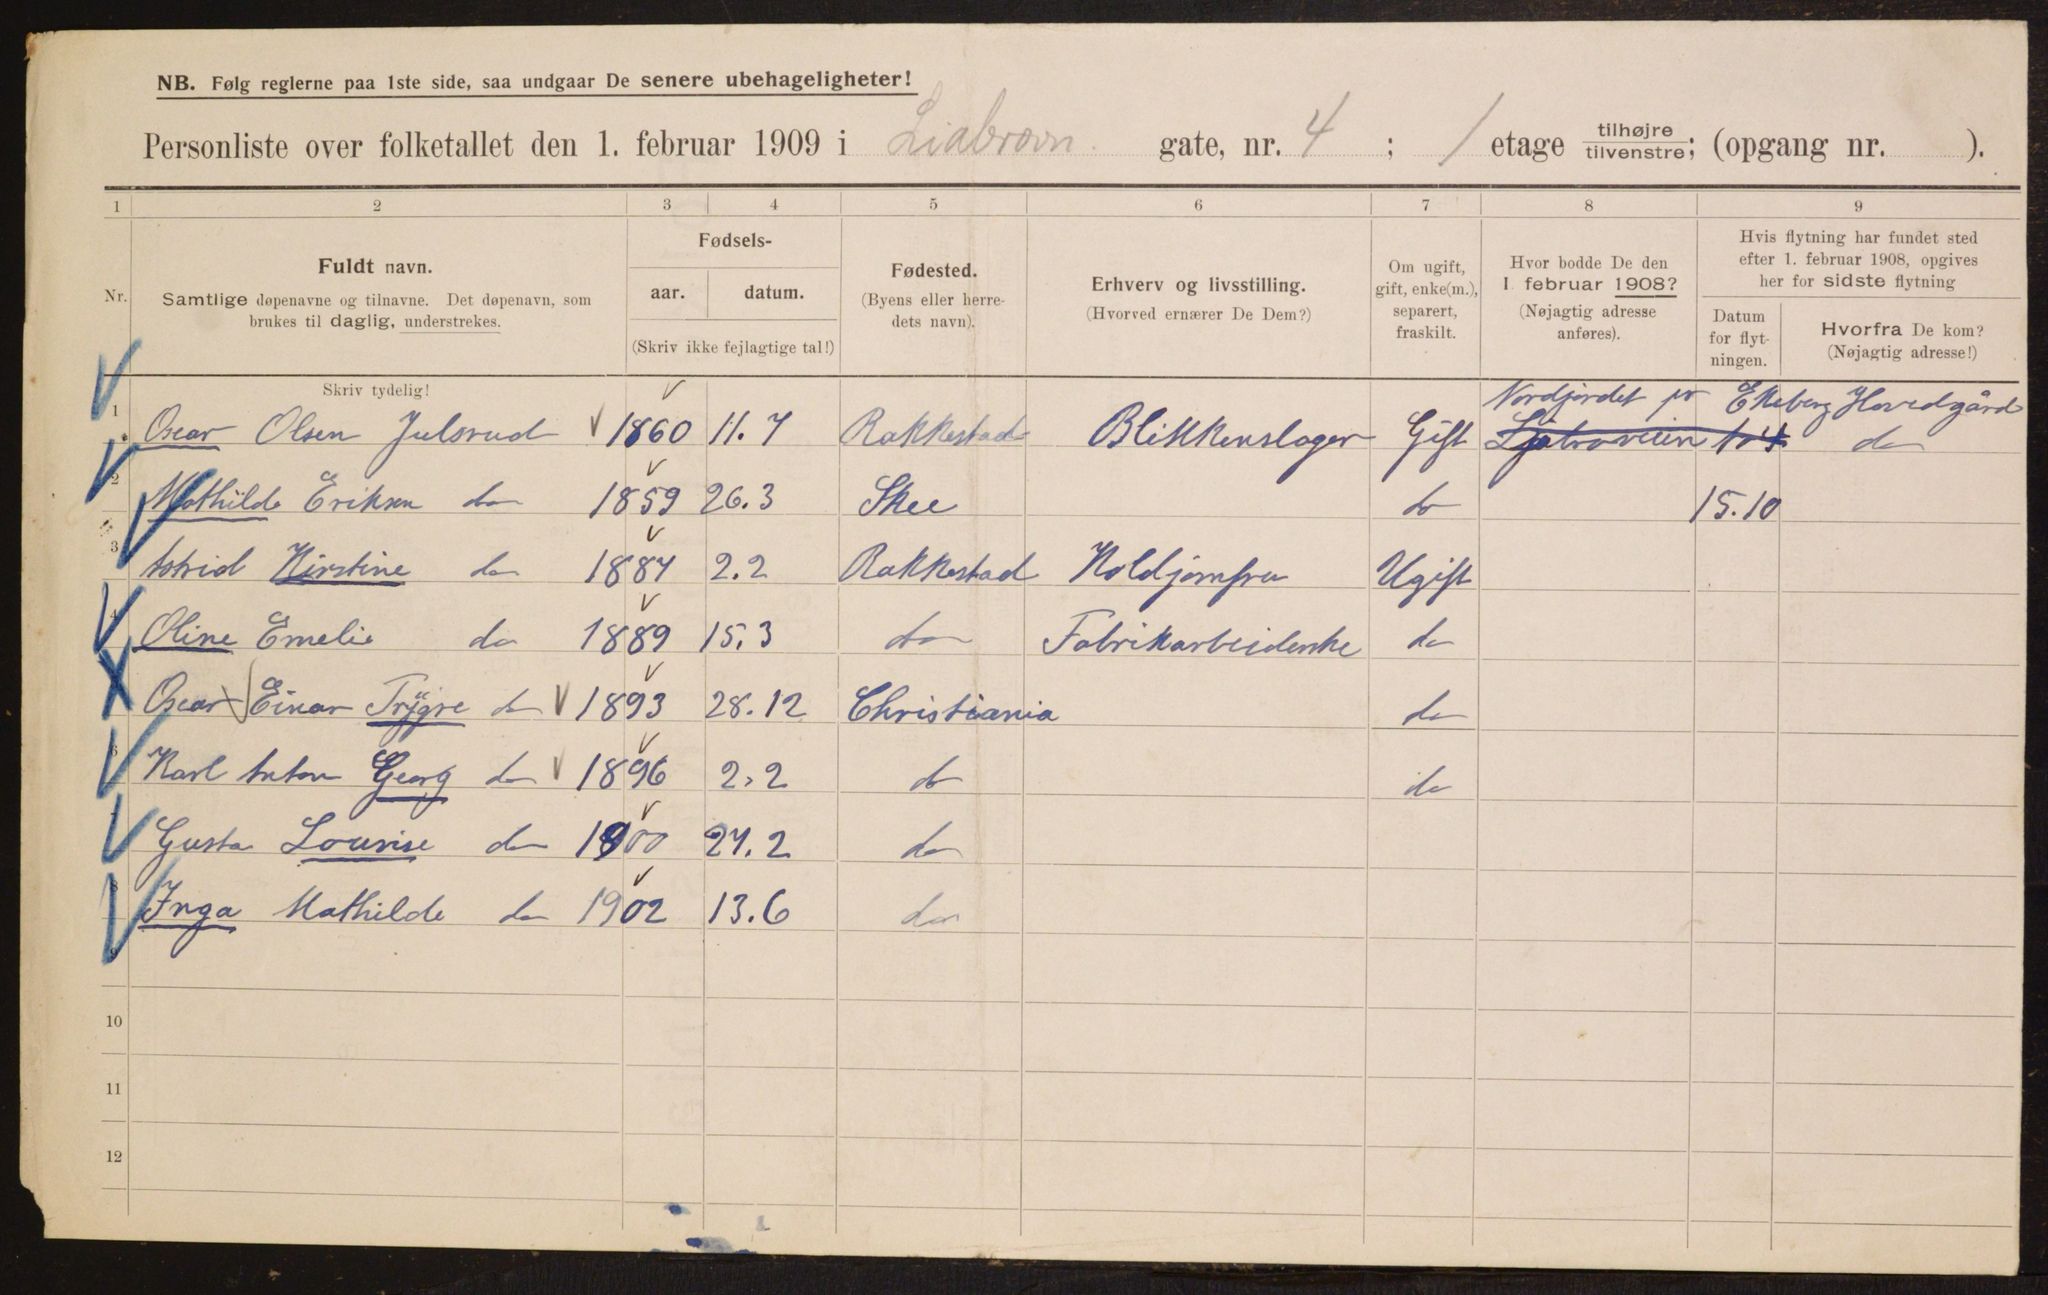 NB. Følg reglerne paa 1ste side, saa undgaar De senere ubehageligheter!
Personliste over folketallet den 1. februar 1909 i Liabrovn. gate, nr. 4 ; 1 etage tilhøjre/tilvenstre; (opgang nr. ).
1 2 3 4 5 6 7 8 9
Nr.
Fuldt navn.
Samtlige døpenavne og tilnavne. Det døpenavn, som
brukes til daglig, understrekes.
Skriv tydelig!
Fødsels-
aar. datum.
(Skriv ikke fejlagtige tal!)
Fødested.
(Byens eller herre-
dets navn).
Erhverv og livsstilling.
(Hvorved ernærer De Dem?)
Om ugift,
gift, enke(m.),
separert,
fraskilt.
Hvor bodde De den
1. februar 1908?
(Nøjagtig adresse
anføres).
Hvis flytning har fundet sted
efter 1. februar 1908, opgives
her for sidste flytning
Datum
for flyt-
ningen.
Hvorfra De kom?
(Nøjagtig adresse!)
Nordjordet pr Ekeberg Hovedgård
1 Oscar Olsen Julsrud 1860 11.7 Rakkestad Blikkenslager Gift Ljabroveien No 4 do
2 Mathilde Eriksen do 1859 26.3 Skee do 15.10
3 Astrid Kirstine do 1887 2.2 Rakkestad Koldjomfru Ugift
4 Oline Emelie do 1889 15.3 do Fabrikarbeiderske do
Oscar Einar Trygve do 1893 28.12 Christiania do
6 Karl Anton Georg do 1896 2.2 do do
7 Gusta Lovise do 1900 27.2 do
8 Inga Mathilde do 1902 13.6 do
9
10
11
12